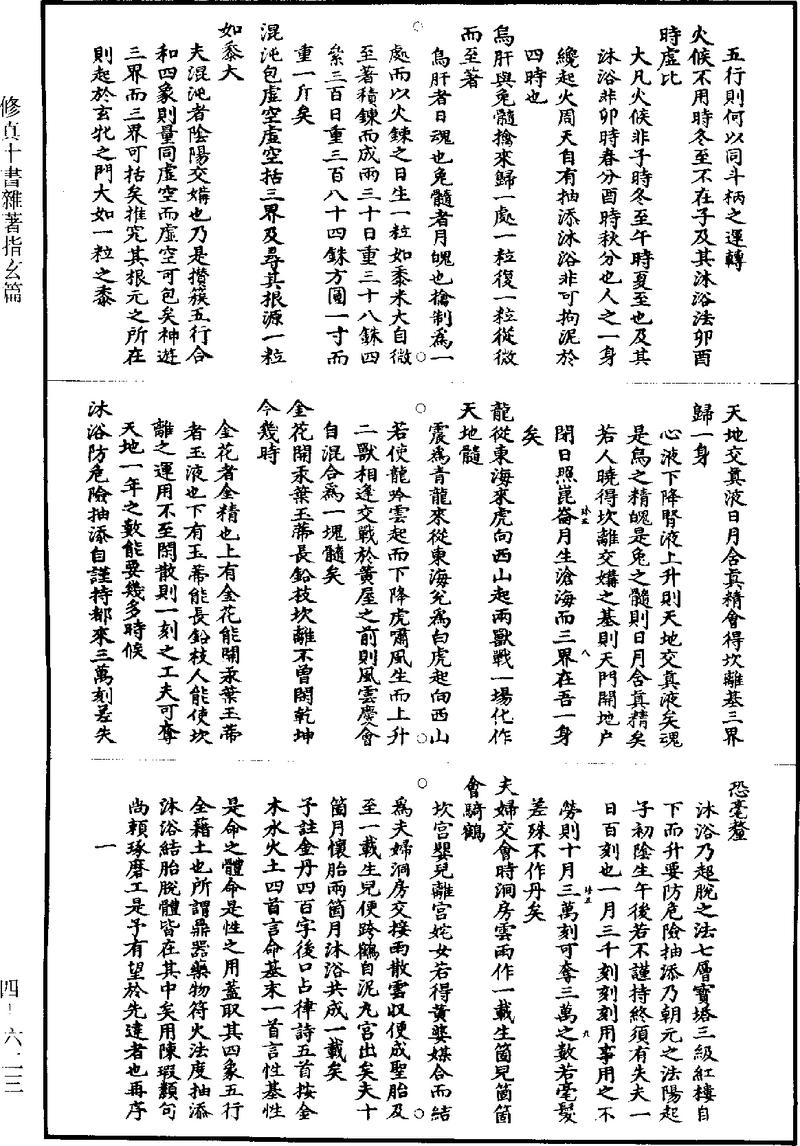 五行則何以同斗柄之運轉
火候不用時冬至不在子及其沐浴法卯酉
時虛比
大凡火候非子時冬至午時夏至也及其
沐浴非卯時春分酉時秋分也人之一身
纔起火周天自有抽添沐浴非可拘泥於
四時也
烏肝與兔髓擒來歸一處一粒復一粒從微
而至著
烏肝者日魂也兔髓者月魄也擒制為一
處而以火鍊之日生一粒如黍米大自微
至著積鍊而成兩三十日重三十八銖四
絫三百日重三百八十四銖方圓一寸而
重一斤矣
混沌包虛空虛空括三界及尋其根源一粒
如黍大
夫混沌者陰陽交媾也乃是攢簇五行合
和四象則量同虛空而虛空可包矣神遊
三界而三界可括矣推究其根元之所在
則起於玄牝之門大如一粒之黍
天地交真液日月含真精會得坎離基三界
歸一身
心液下降腎液上升則天地交真液矣魂
是烏之精魄是兔之髓則日月含真精矣
若人曉得坎離交媾之基則天門開地户
閉日照崑崙月生滄海而三界在吾一身
矣
龍從東海來虎向西山起兩獸戰一場化作
天地髓
震為青龍來從東海兌為白虎起向西山
若使龍吟雲起而下降虎嘯風生而上升
二獸相逢交戰於黃屋之前則風雲慶會
自混合為一塊髓矣
金花開汞葉玉蒂長鉛枝坎離不曾閑乾坤
今幾時
金花者金精也上有金花能開汞葉玉蒂
者玉液也下有玉蒂能長鉛枝人能使坎
離之運用不至閑散則一刻之工夫可奪
天地一年之數能要幾多時候
沐浴防危險抽添自謹持都來三萬刻差失
恐毫釐
沐浴乃超脫之法七層寶塔三級紅樓自
下而升要防危險抽添乃朝元之法陽起
子初陰生午後若不謹持終須有失夫一
日百刻也一月三千刻刻刻用事用之不
勞則十月三萬刻可奪三萬之數若毫髮
差殊不作丹矣
夫婦交會時洞房雲雨作一載生箇兒箇箇
會騎鶴
坎宮嬰兒離宮姹女若得黃婆媒合而結
為夫婦洞房交接雨散雲收便成聖胎及
至一載生兒便跨鶴自泥丸宮出矣夫十
箇月懷胎兩箇月沐浴共成一載矣
予註金丹四百字後口占律詩五首按金
木水火土四首言命基末一首言性基性
是命之體命是性之用蓋取其四象五行
全藉土也所謂鼎器藥物符火法度抽添
沐浴結胎脫體皆在其中矣用陳瑕纇句
尚賴琢磨工是予有望於先達者也再序
一
修真十書雜著指玄篇
四–六二三